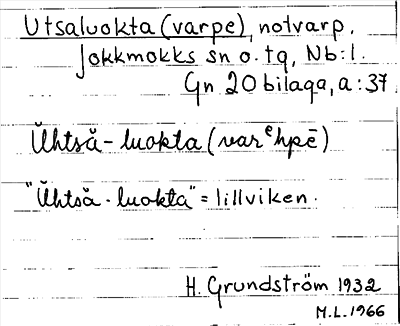 Utsaluokta (varpe), notvarp.
Jokkmokks sn o. tg, Nb:l.
Gn 20 bilaga, a:37
Ŭhtså̆-luokta (varᵉhpē)
"Ŭhtså̆-luokta" = lillviken.
H. Grundström 1932
M.L. 1966